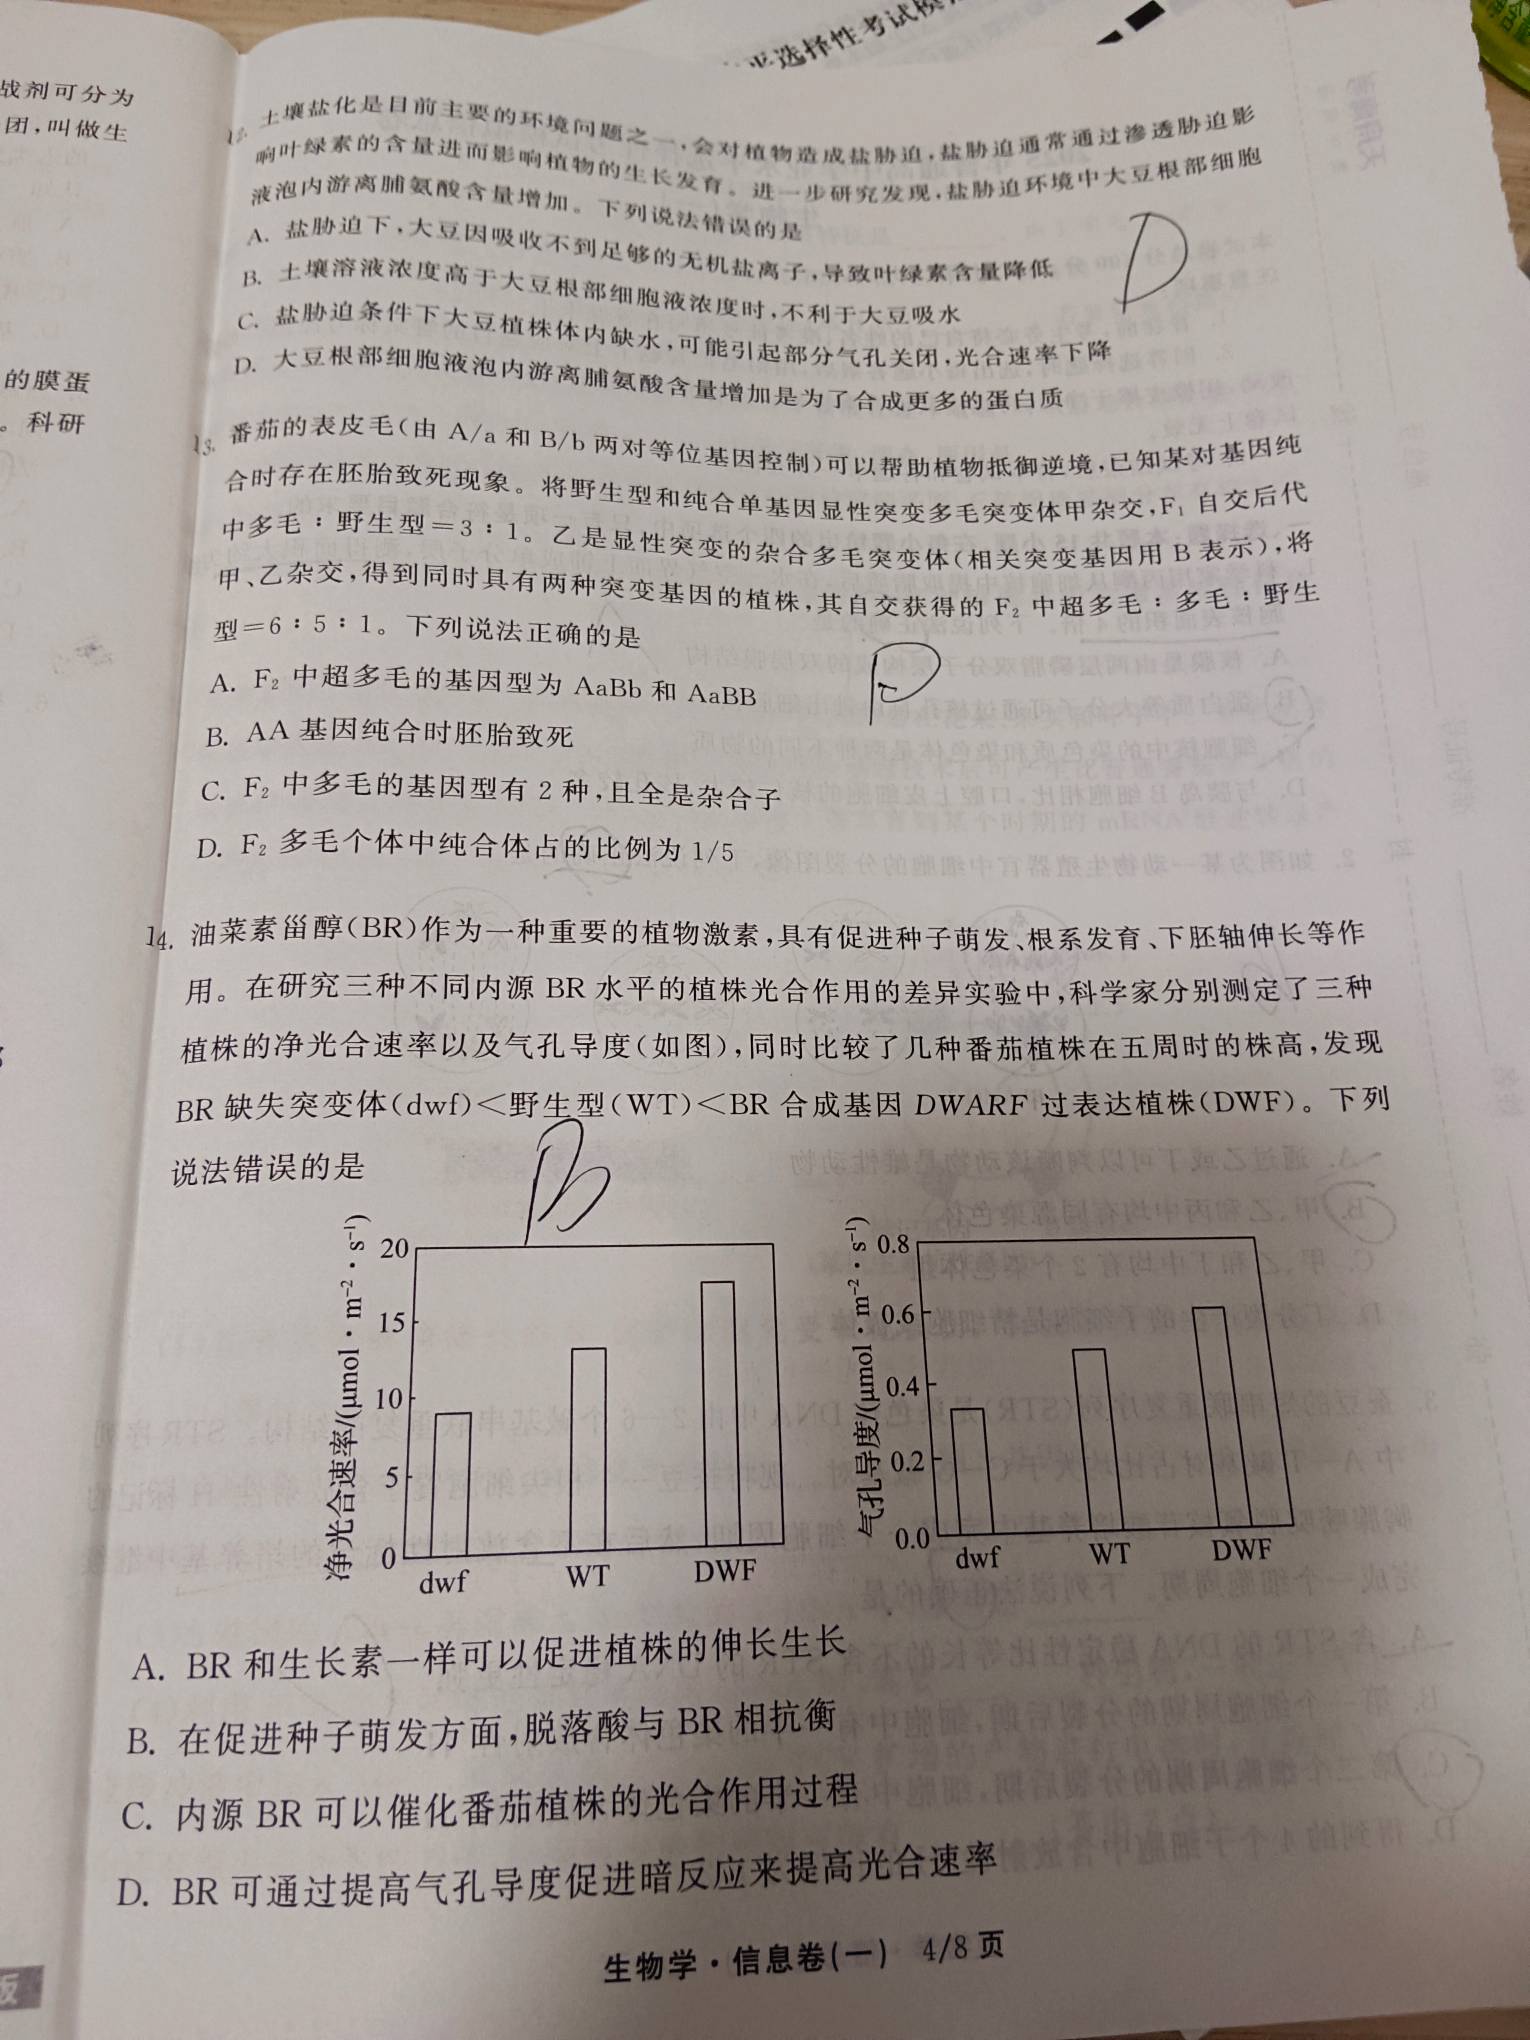 平选择性考试模
战剂可分为
团,叫做生
的膜蛋
。科研
12. 土壤盐化是目前主要的环境问题之一,会对植物造成盐胁迫,盐胁迫通常通过渗透胁迫影
响叶绿素的含量进而影响植物的生长发育。进一步研究发现,盐胁迫环境中大豆根部细胞
液泡内游离脯氨酸含量增加。下列说法错误的是
A. 盐胁迫下,大豆因吸收不到足够的无机盐离子,导致叶绿素含量降低
B. 土壤溶液浓度高于大豆根部细胞液浓度时,不利于大豆吸水
C. 盐胁迫条件下大豆植株体内缺水,可能引起部分气孔关闭,光合速率下降
D. 大豆根部细胞液泡内游离脯氨酸含量增加是为了合成更多的蛋白质
D
13. 番茄的表皮毛(由 A/a 和 B/b 两对等位基因控制)可以帮助植物抵御逆境,已知某对基因纯
合时存在胚胎致死现象。将野生型和纯合单基因显性突变多毛突变体甲杂交,F₁ 自交后代
中多毛:野生型=3:1。乙是显性突变的杂合多毛突变体(相关突变基因用 B 表示),将
甲、乙杂交,得到同时具有两种突变基因的植株,其自交获得的 F₂ 中超多毛:多毛:野生
型=6:5:1。下列说法正确的是
A. F₂ 中超多毛的基因型为 AaBb 和 AaBB
B. AA 基因纯合时胚胎致死
C. F₂ 中多毛的基因型有 2 种,且全是杂合子
D. F₂ 多毛个体中纯合体占的比例为 1/5
D
14. 油菜素甾醇(BR)作为一种重要的植物激素,具有促进种子萌发、根系发育、下胚轴伸长等作
用。在研究三种不同内源 BR 水平的植株光合作用的差异实验中,科学家分别测定了三种
植株的净光合速率以及气孔导度(如图),同时比较了几种番茄植株在五周时的株高,发现
BR 缺失突变体(dwf)<野生型(WT)<BR 合成基因 DWARF 过表达植株(DWF)。下列
说法错误的是
B
净光合速率/(μmol·m⁻²·s⁻¹)
20
15
10
5
0
dwf WT DWF
气孔导度/(μmol·m⁻²·s⁻¹)
0.8
0.6
0.4
0.2
0.0
dwf WT DWF
A. BR 和生长素一样可以促进植株的伸长生长
B. 在促进种子萌发方面,脱落酸与 BR 相抗衡
C. 内源 BR 可以催化番茄植株的光合作用过程
D. BR 可通过提高气孔导度促进暗反应来提高光合速率
生物学·信息卷(一) 4/8 页
版